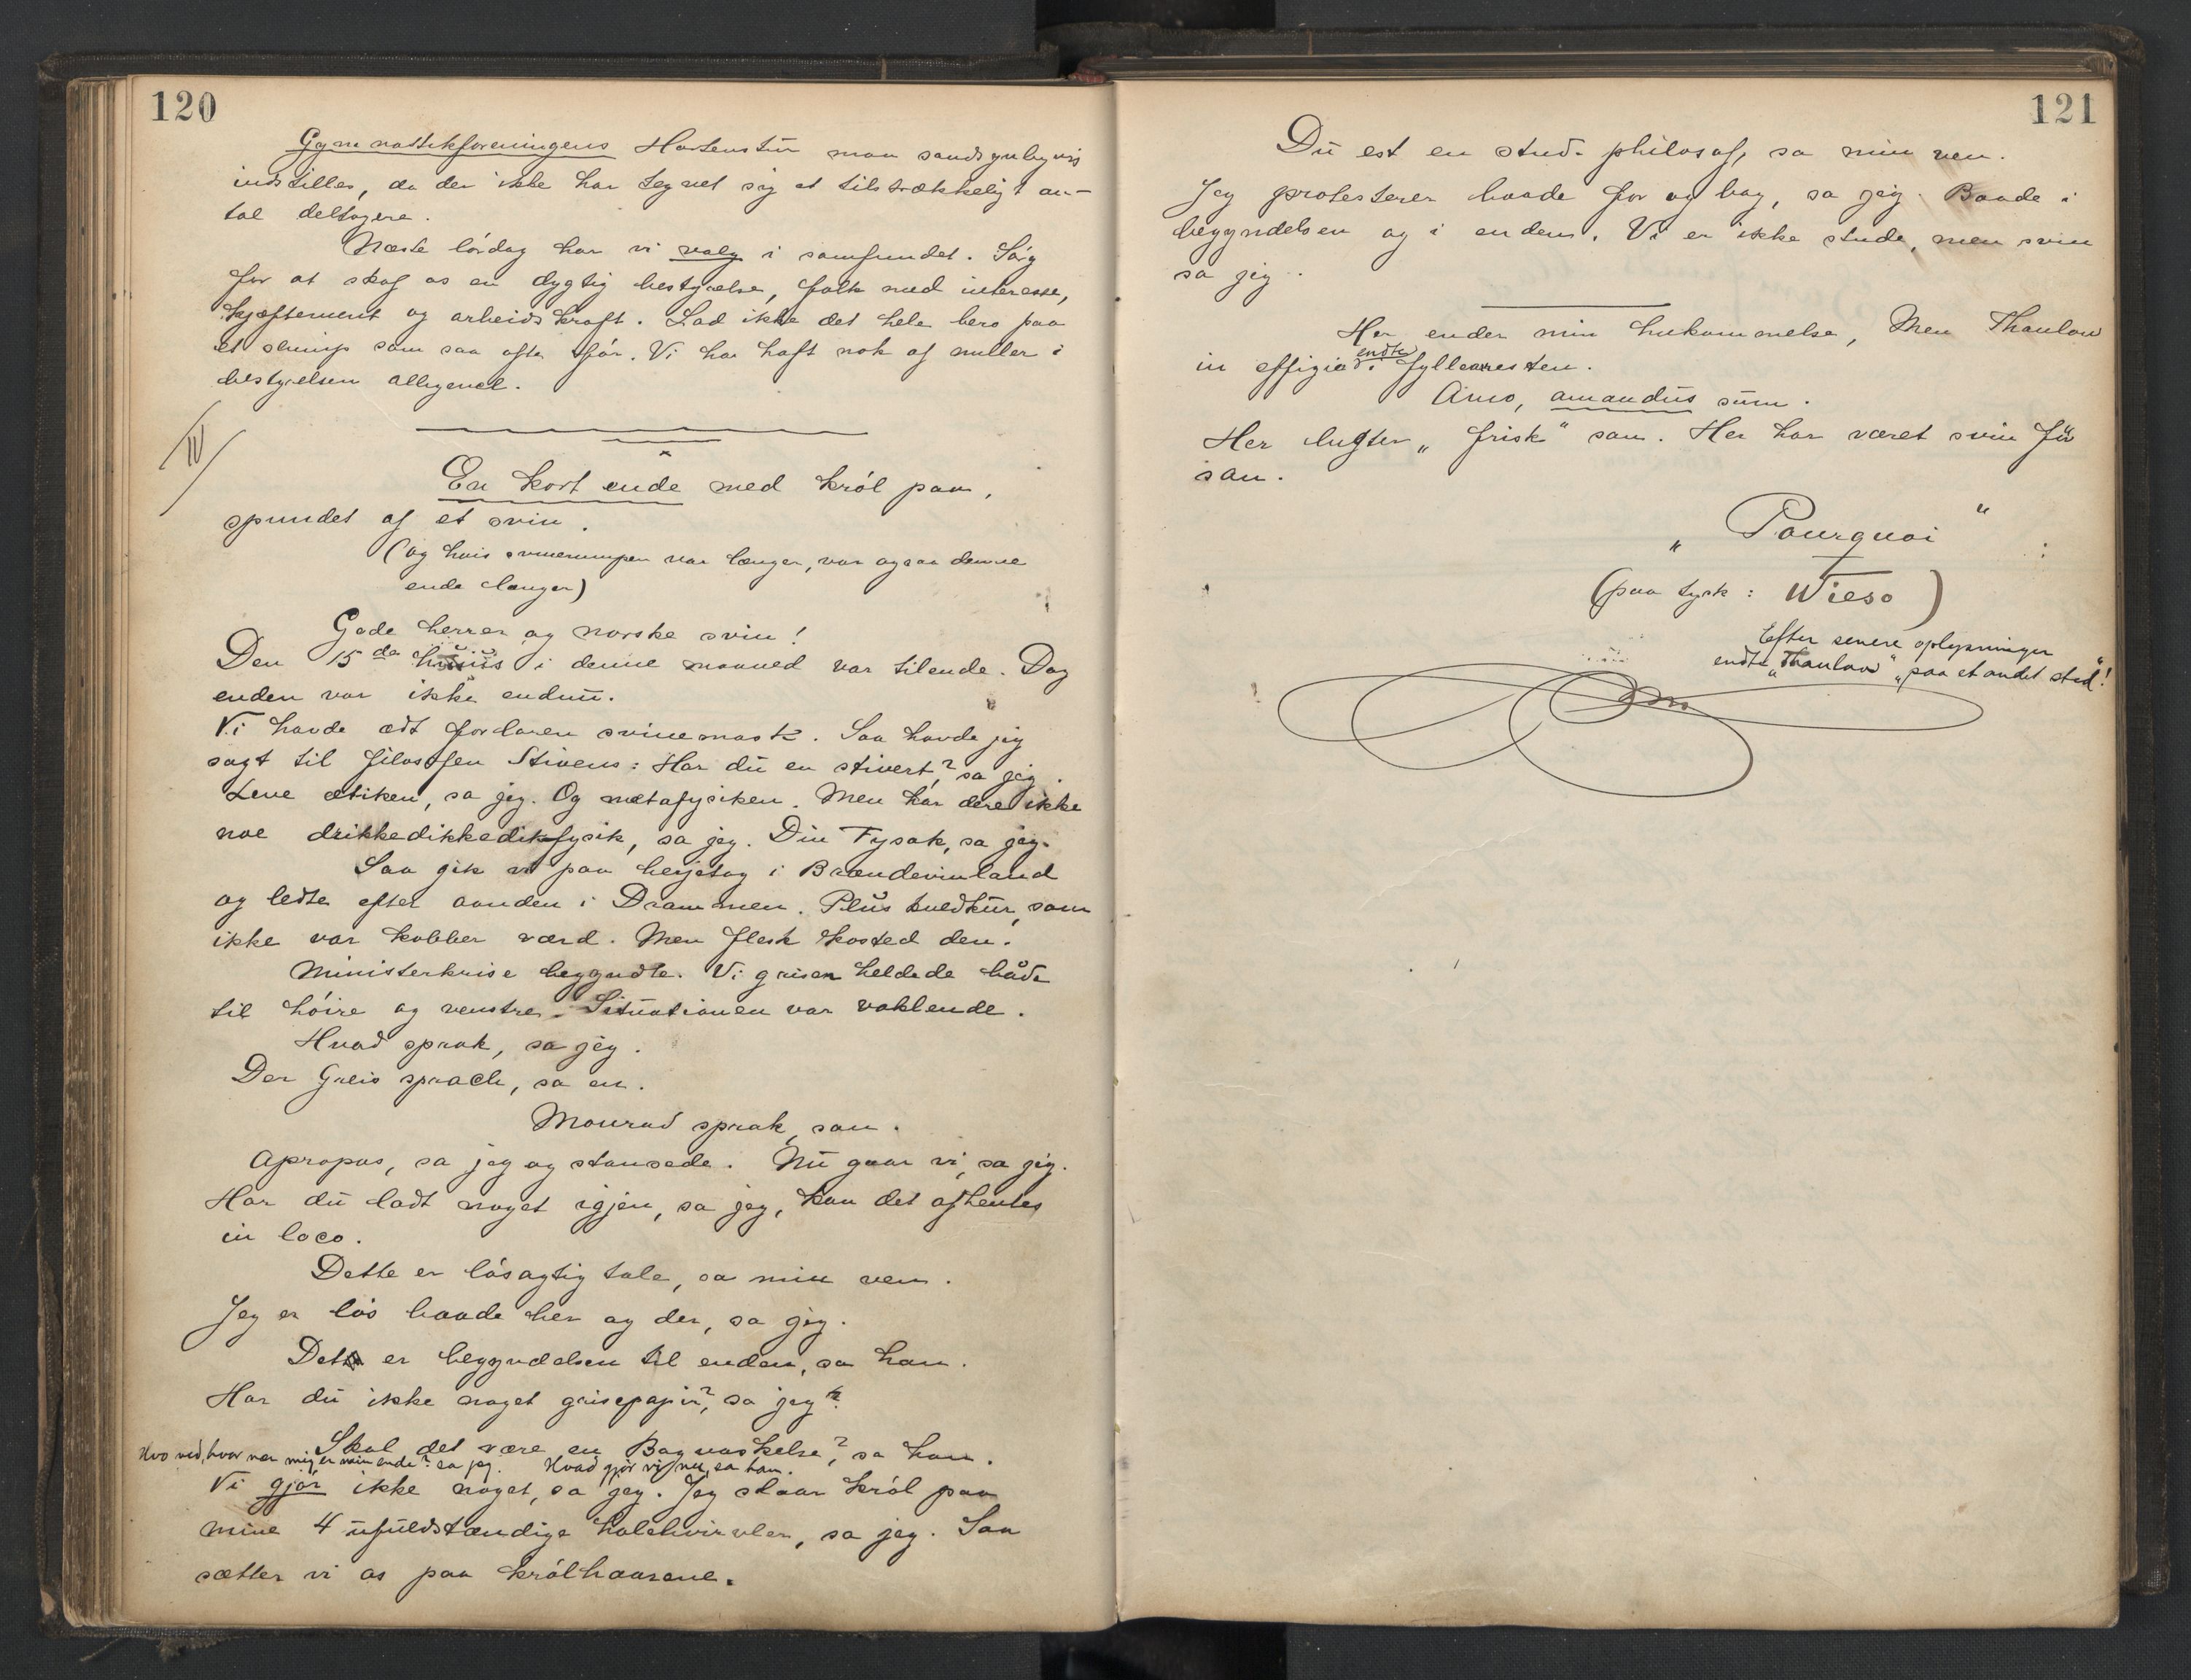 120
Gymnastikforeningens Hortenstur maa sandsynligvis
indstilles, da der ikke har tegnet sig et tilstrækkeligt an-
tal deltagere.
Næste lórdag har vi valg i samfundet. Sórg
for at skaf os en dygtig bestyrelse, folk med interesse,
kjæftement og arbeidskraft. Lad ikke det hele bero paa
et slump som saa ofte fór. Vi har haft nok af nuller i
bestyrelsen alligevel.
IV
En kort ende med króI paa,
spundet af et svin.
(og hvis svinerumpen var længer, var ogsaa denne
ende længer)
Gode herrer og norske svin!
Den 15de i denne maaned var tilende. Dog
enden var ikke endnu.
Vi havde ædt fordaren svinemask. Saa havde jeg
sagt til filosofen Stivens: Har du en stivert,? sa jeg.
Leve ætiken, sa jeg. Og metafysiken. Men har dere ikke
noe drikkedikkedikfysik, sa jeg. Din Fysak, sa jeg.
Saa gik vi paa herjetog i Brændevinland
og ledte efter aanden i Drammen. Plus kuldkur, som
ikke var kobber værd. Men flesk kosted den.
Ministerkrise begyndte. Vi griser heldede både
til hóire og venstre. Situationen var vaklende.
Hvad sprak, sa jeg.
Der Greis sprach, sa en.
Monrad sprak, san.
Apropos, sa jeg og stansede. Nu gaar vi, sa jeg.
Har du ladt noget igjen, sa jeg, kan det afhentes
in loco.
Dette er lósagtig tale, sa min ven.
Jeg er lós baade her og der, sa jeg.
Det er begyndelsen til enden, sa han.
Har du ikke noget grisepapir?, sa jeg.
Skal det være en Bagvaskelse?, sa han.
Hvo ved, hvor nær mig er min ende? sa jeg. Hvad gjór vi nu, sa han.
Vi gjór ikke noget, sa jeg. Jeg slaar król paa
mine 4 ufuldstændige halehvirvler, sa jeg. Saa
sætter vi os paa królhaarene.
121
Du est en stud. philosof, sa min ven.
Jeg protesterer baade for og bag, sa jeg. Baade i
begyndelsen og i enden. Vi er ikke stude, men svin
sa jeg.
Her ender min hukommelse, Men Thaulow
in effigie endte i fyllearesten.
Amo, amandus sum.
Her lugter "frisk" san. Her har været svin fór
san.
"Pourquoi"
(paa tysk: Wieso)
Efter senere oplysninger
endte "Thaulow" "paa et andet sted"!